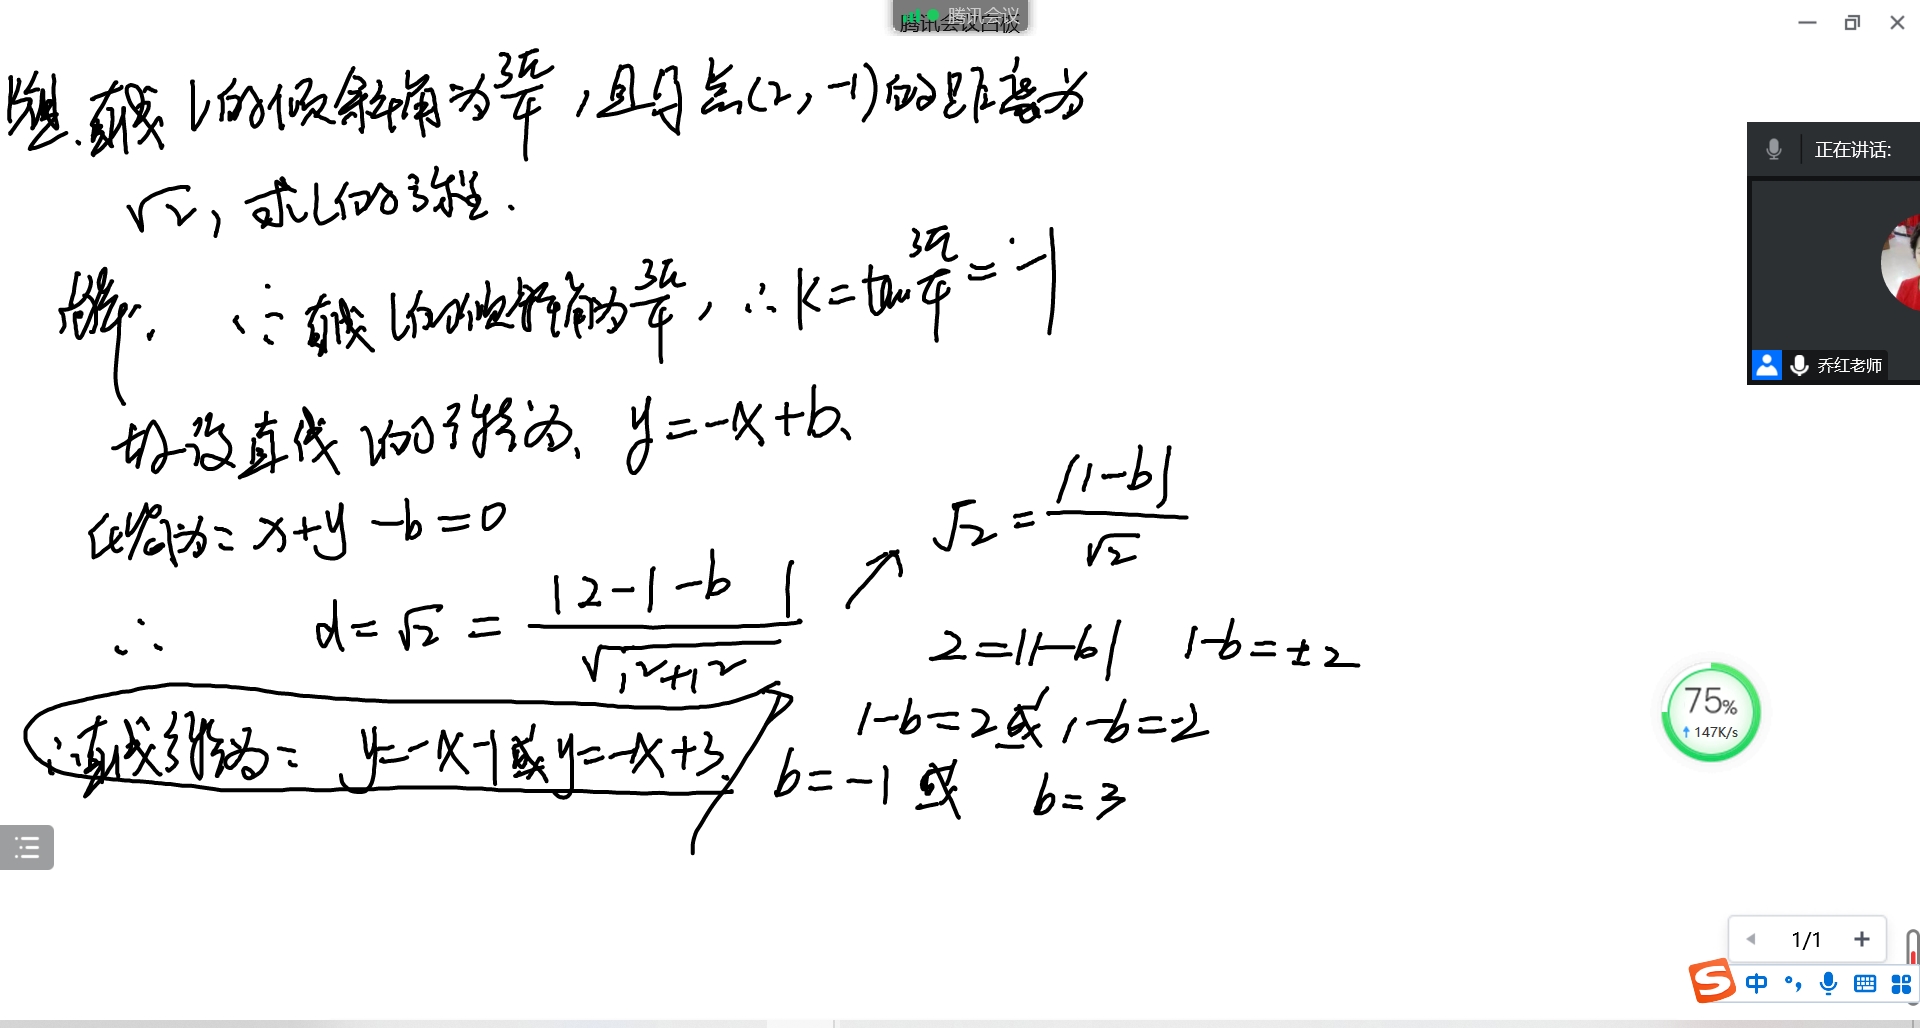 腾讯会议
腾讯会议白板
题.直线l的倾斜角为3π/4,且与点(2,-1)的距离为
√2,求l的方程.
解. ∵直线l的倾斜角为3π/4,∴k=tan3π/4=-1
故设直线l的方程为、y=-x+b、
化简为:x+y-b=0
∴ d=√2=|2-1-b|/√(1²+1²)
√2=|1-b|/√2
2=|1-b| 1-b=±2
1-b=2或1-b=-2
b=-1或 b=3
∴直线方程为:y=-x-1或y=-x+3.
正在讲话:
乔红老师
75%
147K/s
1/1
中